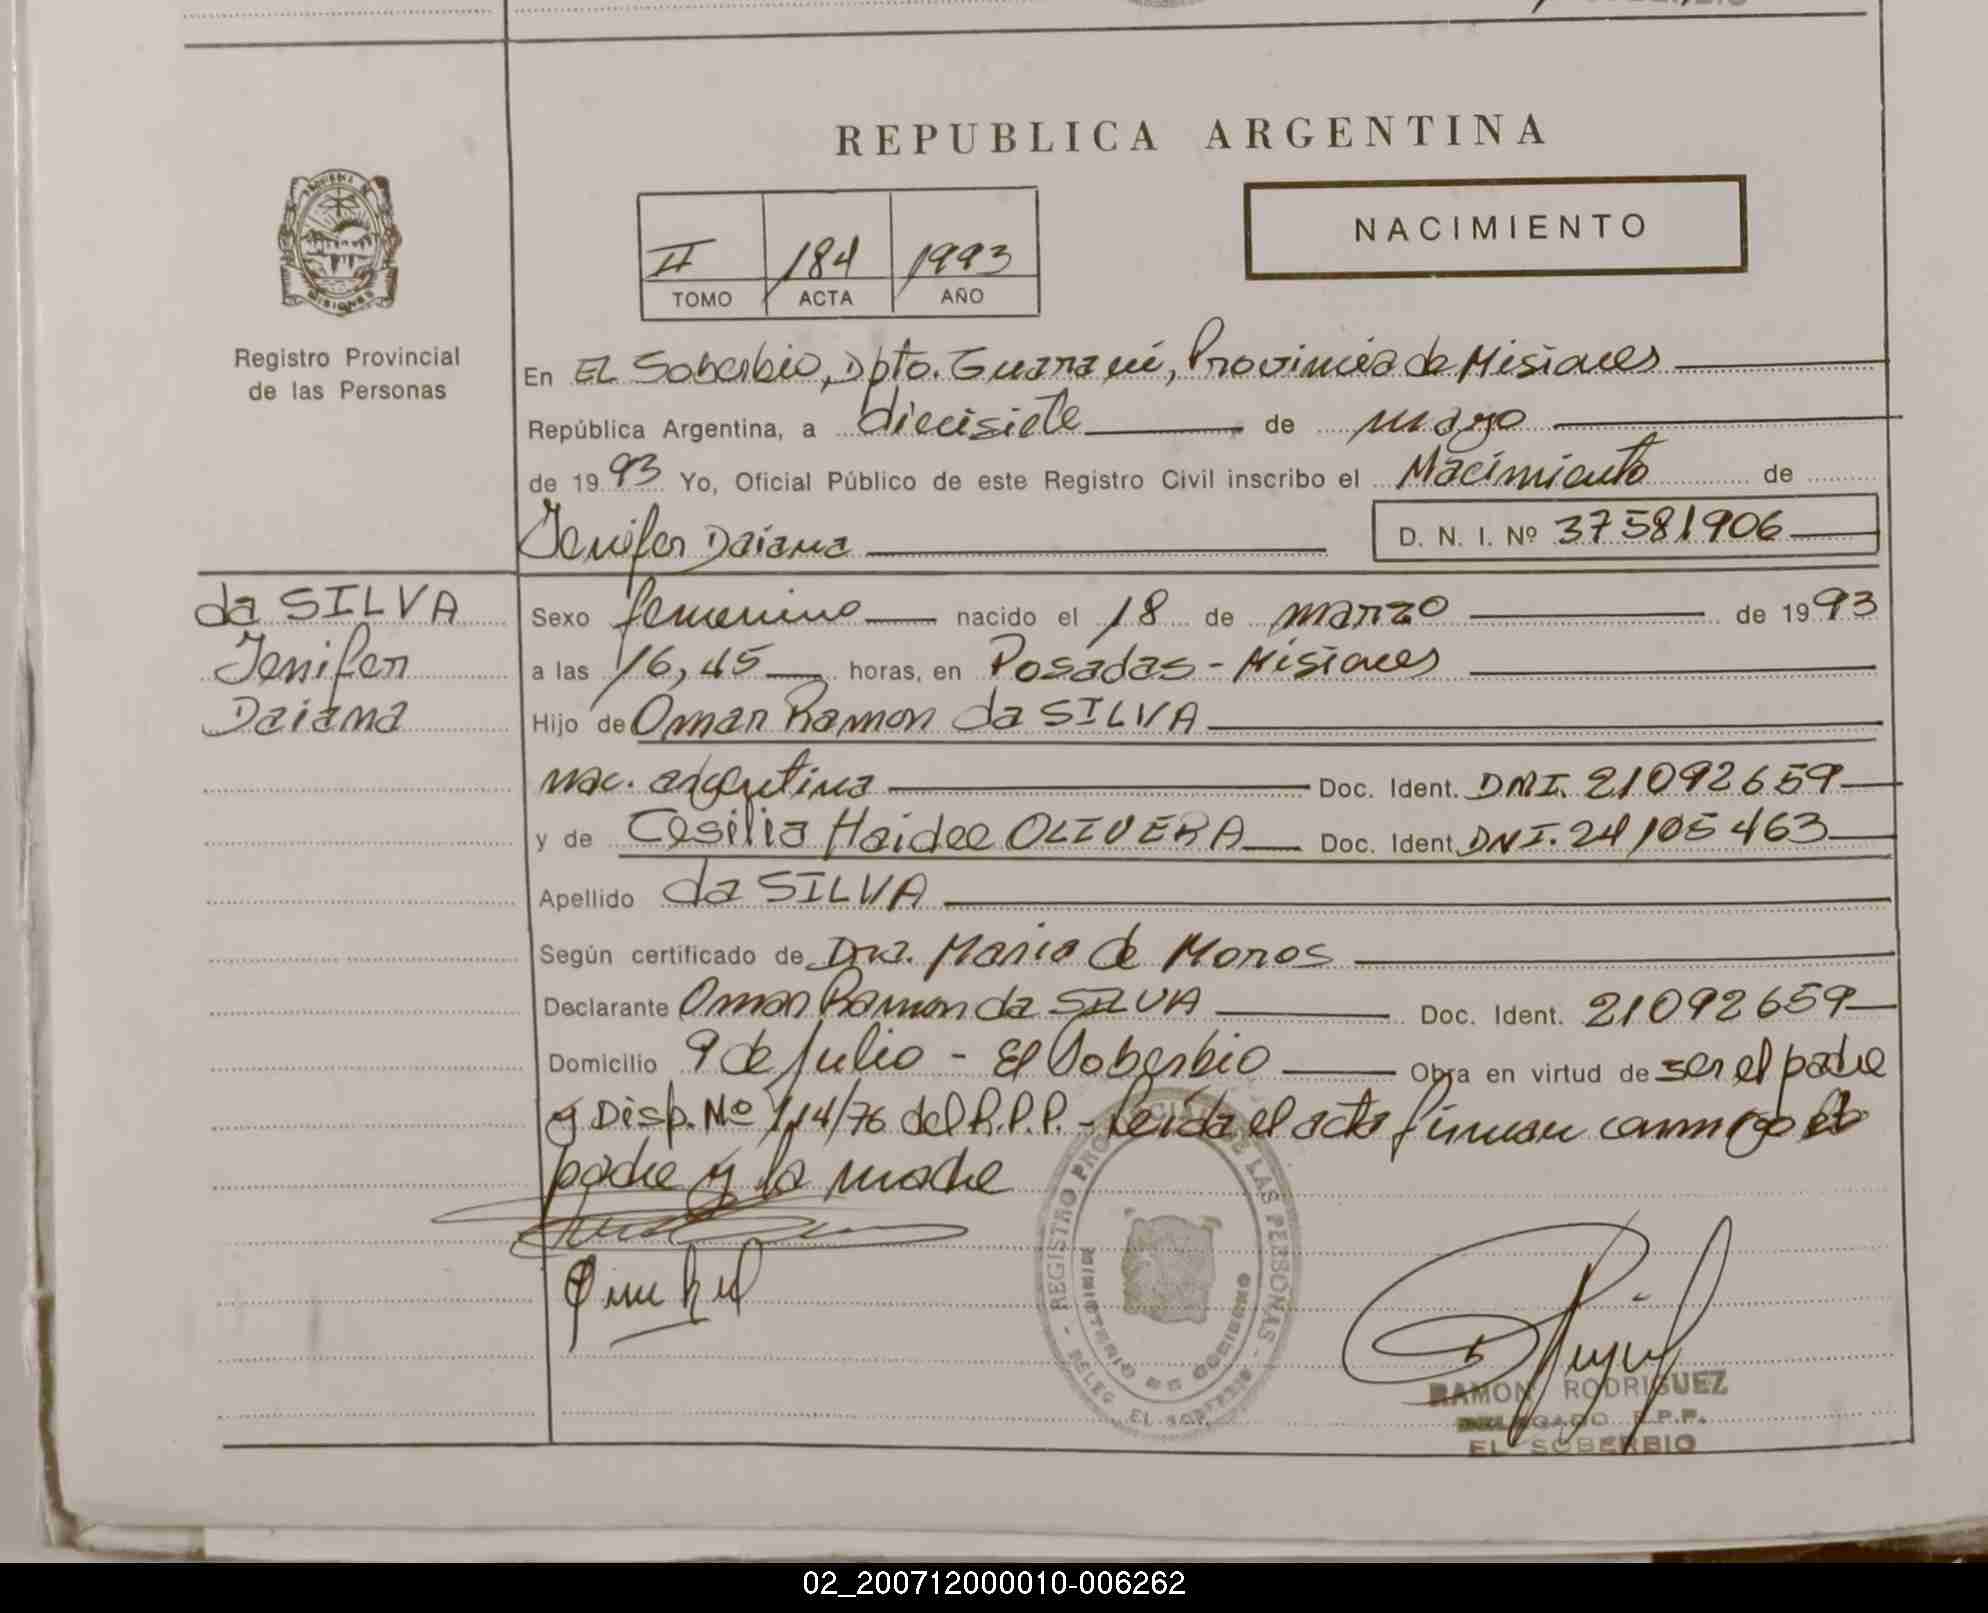 REPUBLICA ARGENTINA
NACIMIENTO
II 184 1993
TOMO ACTA AÑO
PROVINCIA DE
MISIONES
Registro Provincial
de las Personas
En EL Soberbio, Dpto. Guarani, Provincia de Misiones
República Argentina, a diecisiete de mayo
de 1993 Yo, Oficial Público de este Registro Civil inscribo el Nacimiento de
Jenifer Daiana D. N. I. Nº 37581906
da SILVA
Jenifer
Daiana
Sexo femenino nacido el 18 de marzo de 1993
a las 16,45 horas, en Posadas - Misiones
Hijo de Omar Ramon da SILVA
nac. argentina Doc. Ident. DNI. 21092659
y de Cesilia Haidee OLIVERA Doc. Ident. DNI. 24105463
Apellido da SILVA
Según certificado de Dra. Maria de Moros
Declarante Omar Ramon da SILVA Doc. Ident. 21092659
Domicilio 9 de Julio - El Soberbio Obra en virtud de ser el padre
y Disp. Nº 114/76 del R.P.P. - Leida el acta firman conmigo el
padre y la madre
REGISTRO PROVINCIAL DE LAS PERSONAS - DELEG. EL SOBERBIO
MINISTERIO DE GOBIERNO
RAMON RODRIGUEZ
DELEGADO R.P.P.
EL SOBERBIO
02_200712000010-006262